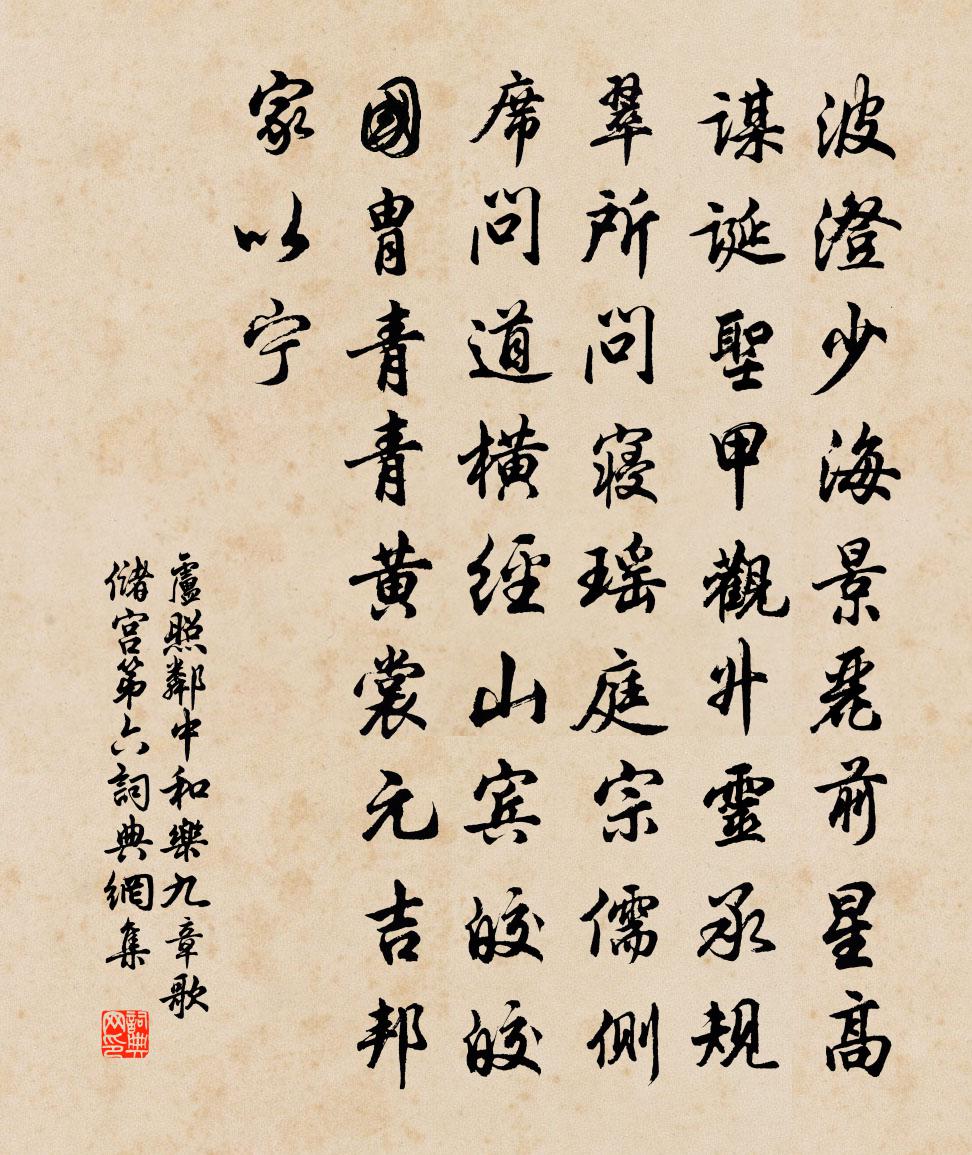 波澄少海景麗前星高
謀誕聖甲觀升靈承規
翠所問寢瑶庭宗儒側
席問道橫經山宾皎皎
國胄青青黄裳元吉邦
家以宁
盧照鄰中和樂九章歌
儲宫第六詞典網集
詞典网印